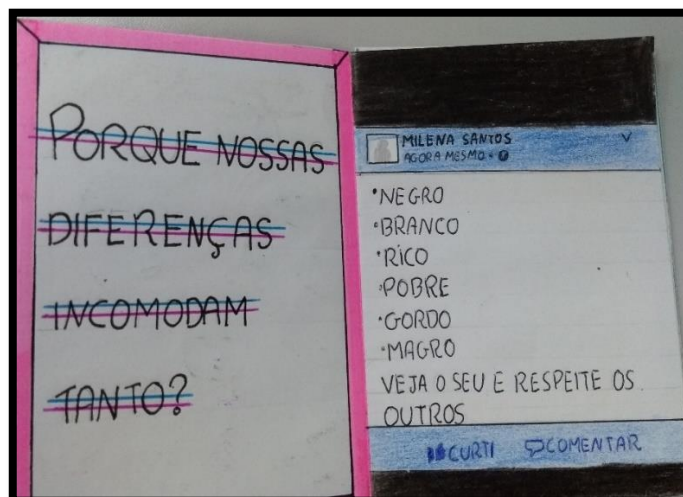 PORQUE NOSSAS
DIFERENÇAS
INCOMODAM
TANTO?
MILENA SANTOS
AGORA MESMO •
• NEGRO
• BRANCO
• RICO
• POBRE
• GORDO
• MAGRO
VEJA O SEU E RESPEITE OS
OUTROS
CURTI COMENTAR